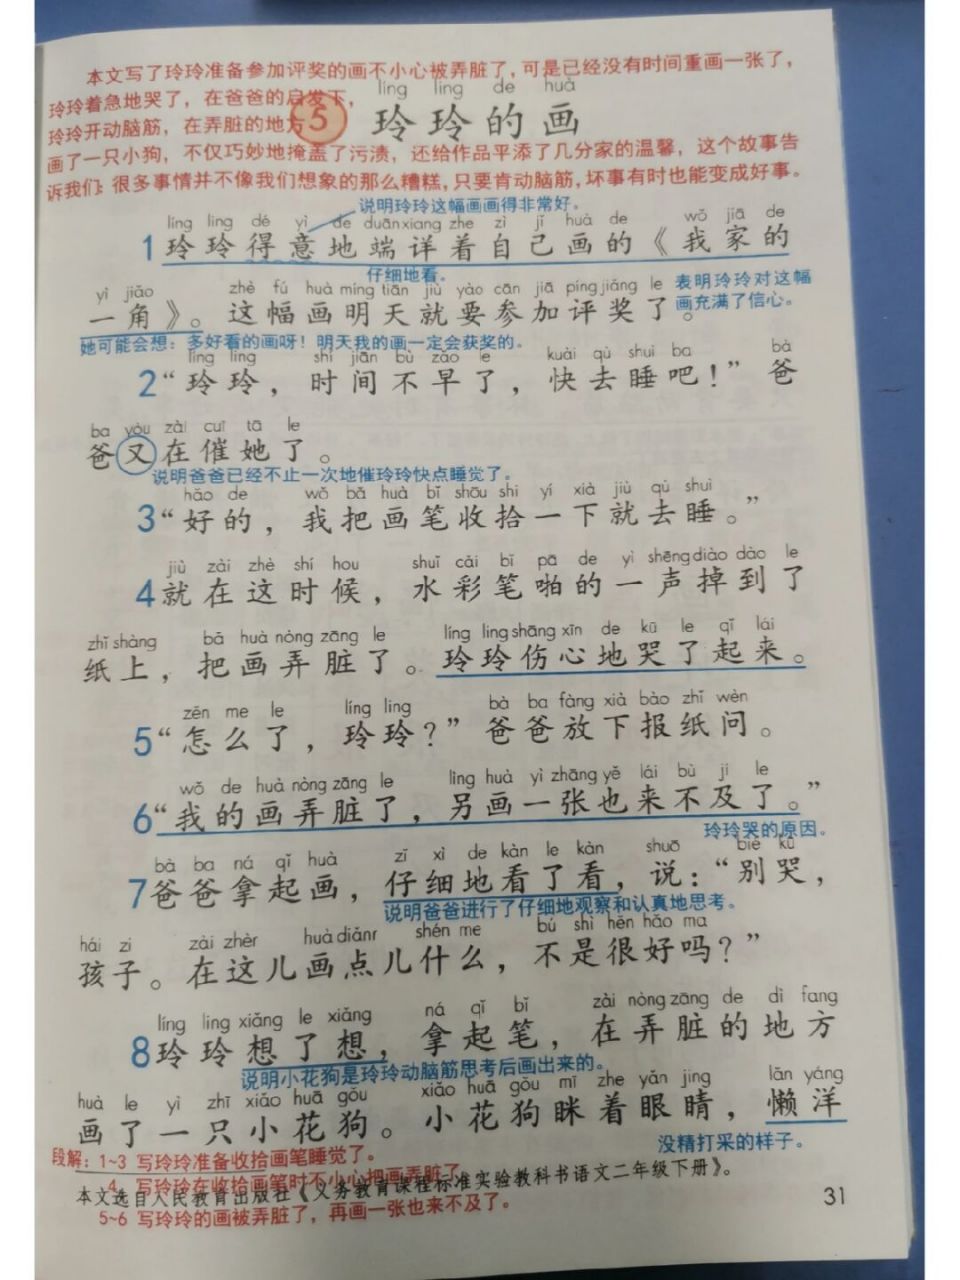 本文写了玲玲准备参加评奖的画不小心被弄脏了,可是已经没有时间重画一张了,
玲玲着急地哭了,在爸爸的启发下,
líng ling de huà
玲玲开动脑筋,在弄脏的地方
5 玲玲的画
画了一只小狗,不仅巧妙地掩盖了污渍,还给作品平添了几分家的温馨,这个故事告
诉我们:很多事情并不像我们想象的那么糟糕,只要肯动脑筋,坏事有时也能变成好事。
说明玲玲这幅画画得非常好。
líng ling dé yì de duān xiang zhe zì jǐ huà de wǒ jiā de
1 玲玲得意地端详着自己画的《我家的
仔细地看。
表明玲玲对这幅
画充满了信心。
yì jiǎo zhè fú huà míng tiān jiù yào cān jiā píng jiǎng le
一角》。这幅画明天就要参加评奖了。
她可能会想:多好看的画呀!明天我的画一定会获奖的。
líng ling shí jiān bù zǎo le kuài qù shuì ba bà
2 “玲玲,时间不早了,快去睡吧!”爸
ba yòu zài cuī tā le
爸又在催她了。
说明爸爸已经不止一次地催玲玲快点睡觉了。
hǎo de wǒ bǎ huà bǐ shōu shi yí xià jiù qù shuì
3 “好的,我把画笔收拾一下就去睡。”
jiù zài zhè shí hou shuǐ cǎi bǐ pā de yì shēng diào dào le
4 就在这时候,水彩笔啪的一声掉到了
zhǐ shàng bǎ huà nòng zāng le líng ling shāng xīn de kū le qǐ lái
纸上,把画弄脏了。玲玲伤心地哭了起来。
zěn me le líng ling bà ba fàng xià bào zhǐ wèn
5 “怎么了,玲玲?”爸爸放下报纸问。
wǒ de huà nòng zāng le lìng huà yì zhāng yě lái bù jí le
6 “我的画弄脏了,另画一张也来不及了。”
玲玲哭的原因。
bà ba ná qǐ huà zǐ xì de kàn le kàn shuō bié kū
7 爸爸拿起画,仔细地看了看,说:“别哭,
说明爸爸进行了仔细地观察和认真地思考。
hái zi zài zhèr huà diǎnr shén me bú shì hěn hǎo ma
孩子。在这儿画点儿什么,不是很好吗?”
líng ling xiǎng le xiǎng ná qǐ bǐ zài nòng zāng de dì fang
8 玲玲想了想,拿起笔,在弄脏的地方
说明小花狗是玲玲动脑筋思考后画出来的。
huà le yì zhī xiǎo huā gǒu xiǎo huā gǒu mī zhe yǎn jing lǎn yáng
画了一只小花狗。小花狗眯着眼睛,懒洋
没精打采的样子。
段解:1~3 写玲玲准备收拾画笔睡觉了。
4 写玲玲在收拾画笔时不小心把画弄脏了
本文选自人民教育出版社《义务教育课程标准实验教科书语文二年级下册》。
5~6 写玲玲的画被弄脏了,再画一张也来不及了。
31